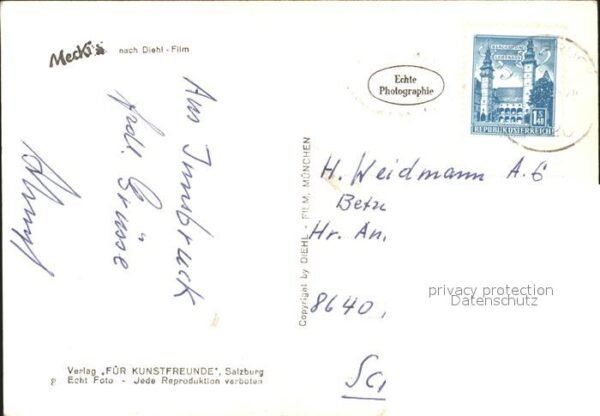 Mecki nach Diehl-Film
Echte
Photographie
1S 40
REPUBLIK ÖSTERREICH
Aus Innsbruck
frdl. Grüsse
Copyright by DIEHL - FILM, MÜNCHEN
H. Weidmann A.G
Betr
Hr. An.
8640,
privacy protection
Datenschutz
Verlag „FÜR KUNSTFREUNDE", Salzburg
Echt Foto - Jede Reproduktion verboten